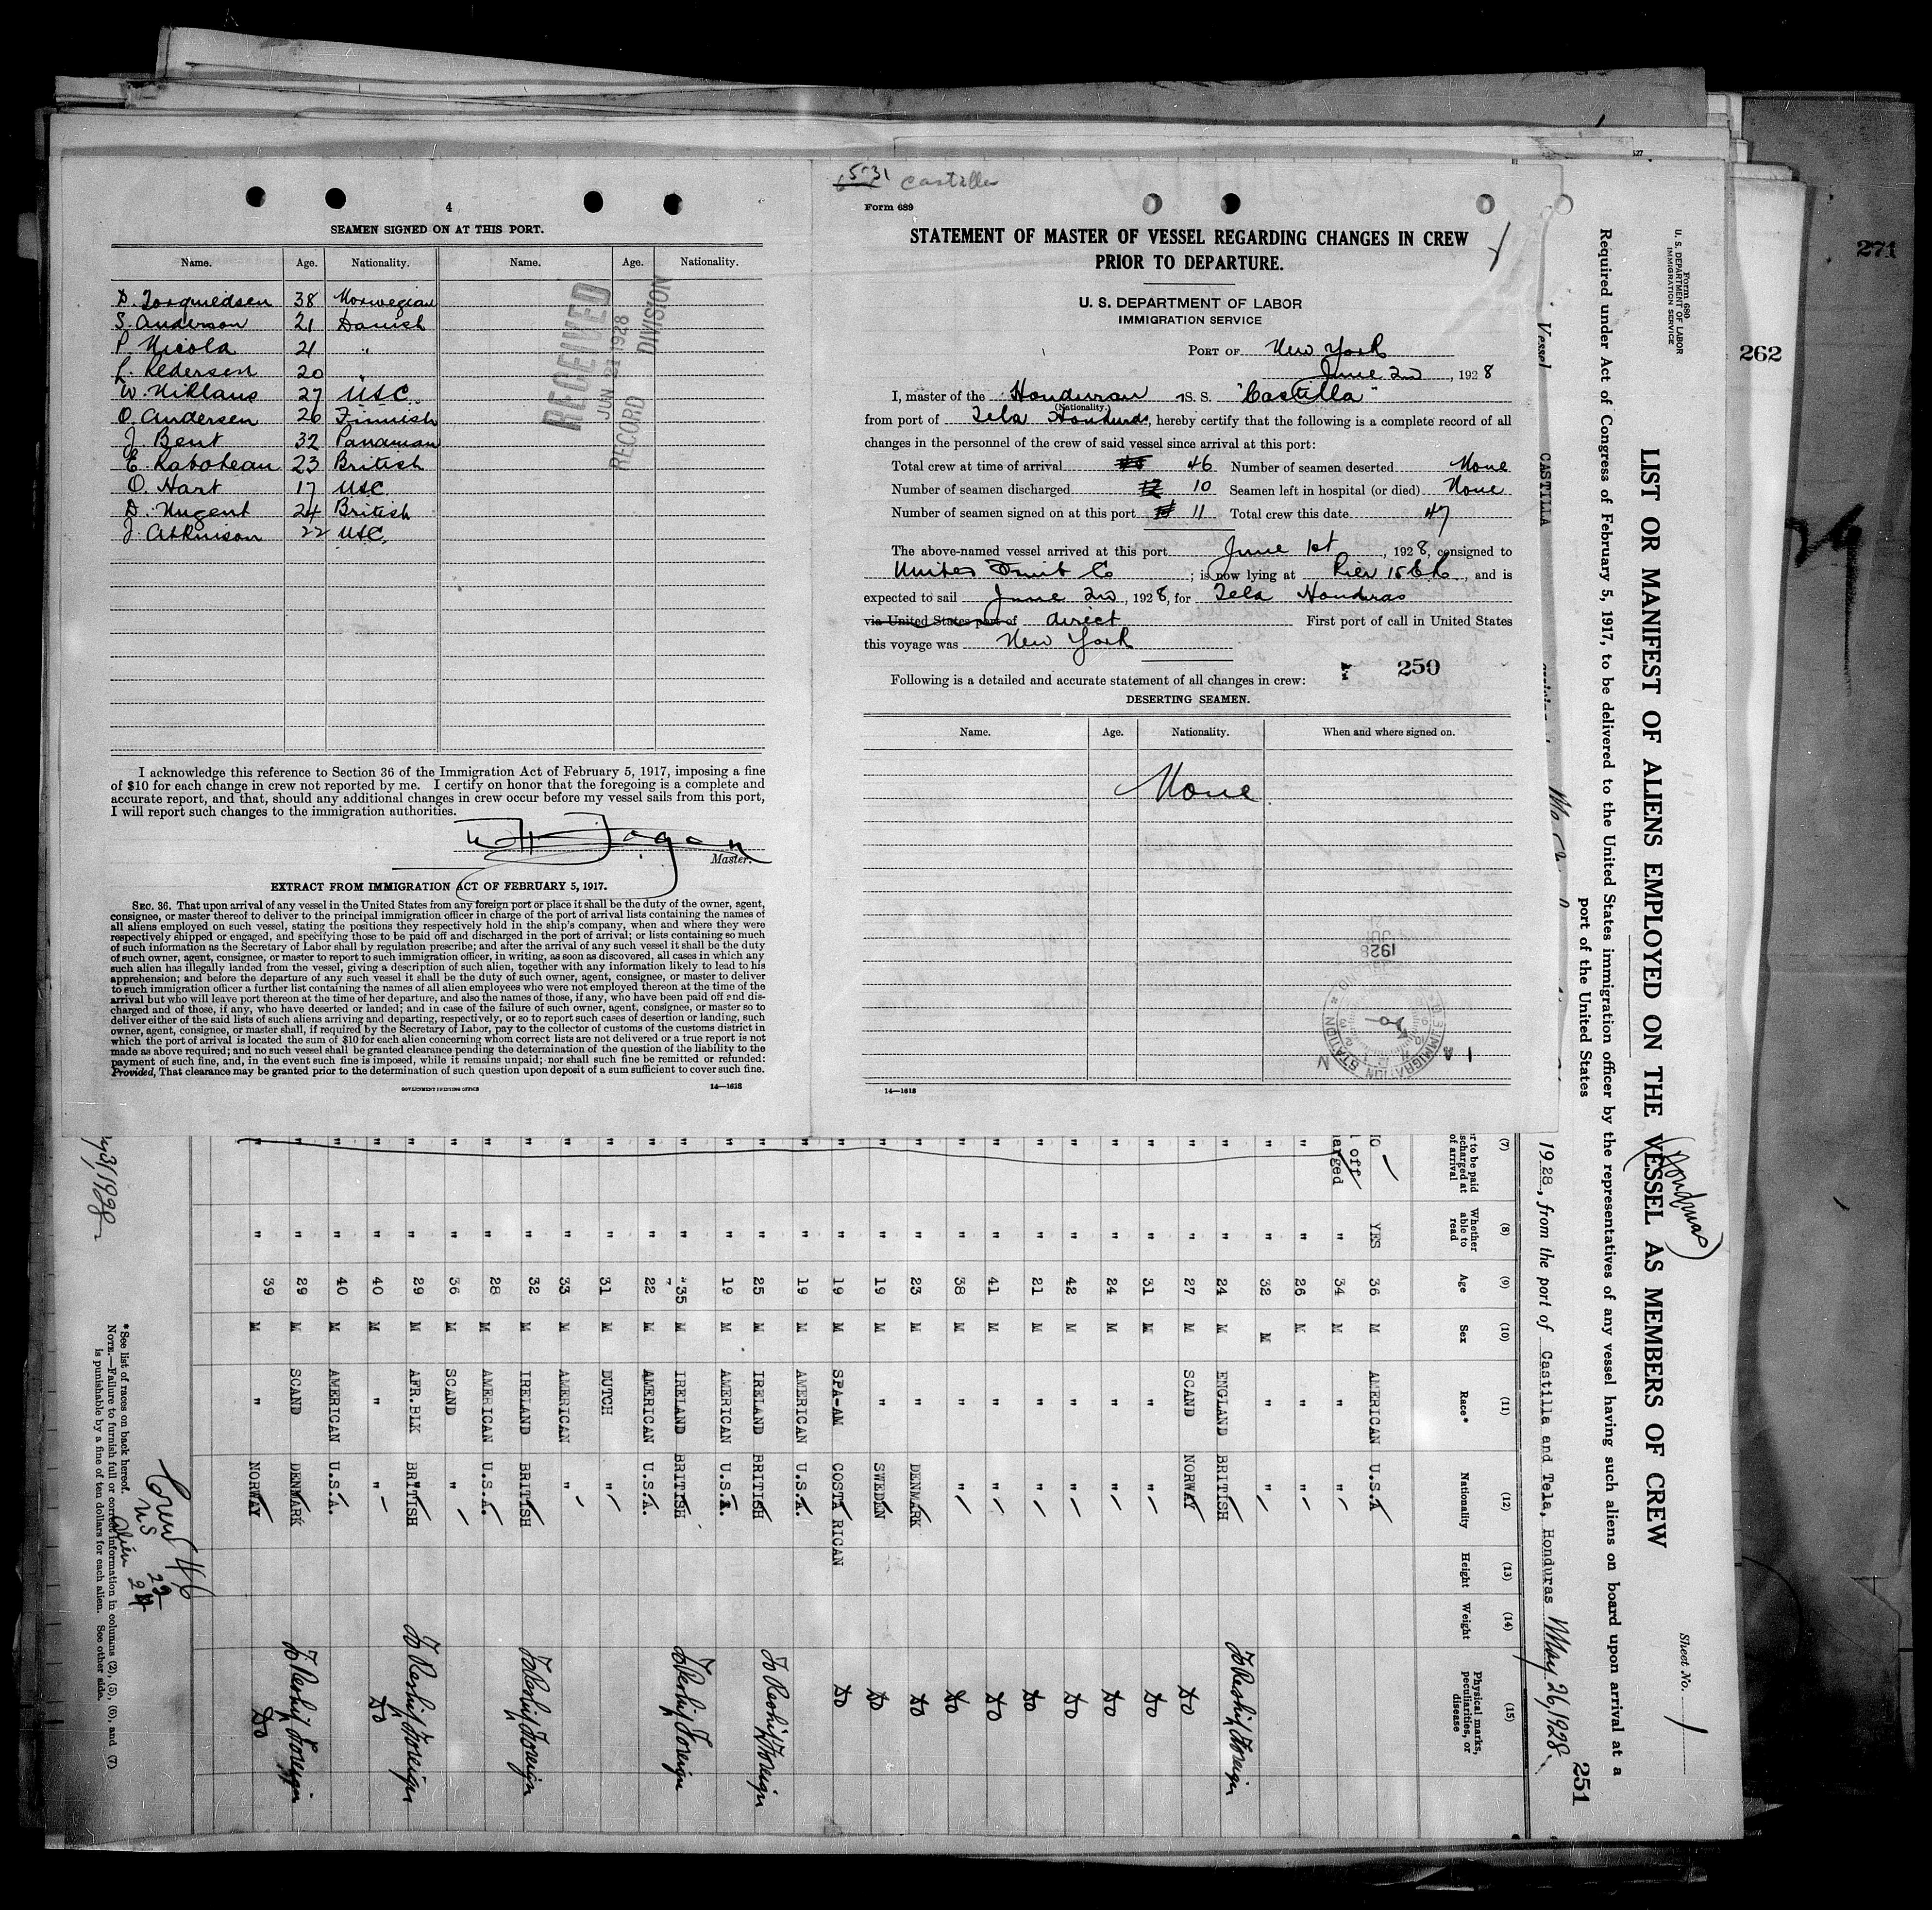 4
SEAMEN SIGNED ON AT THIS PORT.
Name. Age. Nationality. Name. Age. Nationality.
38 Norwegian
S. Anderson 21 Danish
P. Nicola 21 "
L. Pedersen 20 "
W. Niklaus 27 USC.
O. Andersen 26 Finnish
J. Bent 32 Panaman
E. 23 British
O. Hart 17 USC
D. Nugent 24 British
J. Atkinson 22 USC.
RECEIVED
JUN 21 1928
RECORD DIVISION
I acknowledge this reference to Section 36 of the Immigration Act of February 5, 1917, imposing a fine
of $10 for each change in crew not reported by me. I certify on honor that the foregoing is a complete and
accurate report, and that, should any additional changes in crew occur before my vessel sails from this port,
I will report such changes to the immigration authorities.
Master.
EXTRACT FROM IMMIGRATION ACT OF FEBRUARY 5, 1917.
SEC. 36. That upon arrival of any vessel in the United States from any foreign port or place it shall be the duty of the owner, agent,
consignee, or master thereof to deliver to the principal immigration officer in charge of the port of arrival lists containing the names of
all aliens employed on such vessel, stating the positions they respectively hold in the ship's company, when and where they were
respectively shipped or engaged, and specifying those to be paid off and discharged in the port of arrival; or lists containing so much
of such information as the Secretary of Labor shall by regulation prescribe; and after the arrival of any such vessel it shall be the duty
of such owner, agent, consignee, or master to report to such immigration officer, in writing, as soon as discovered, all cases in which any
such alien has illegally landed from the vessel, giving a description of such alien, together with any information likely to lead to his
apprehension; and before the departure of any such vessel it shall be the duty of such owner, agent, consignee, or master to deliver
to such immigration officer a further list containing the names of all alien employees who were not employed thereon at the time of the
arrival but who will leave port thereon at the time of her departure, and also the names of those, if any, who have been paid off and dis-
charged and of those, if any, who have deserted or landed; and in case of the failure of such owner, agent, consignee, or master so to
deliver either of the said lists of such aliens arriving and departing, respectively, or so to report such cases of desertion or landing, such
owner, agent, consignee, or master shall, if required by the Secretary of Labor, pay to the collector of customs of the customs district in
which the port of arrival is located the sum of $10 for each alien concerning whom correct lists are not delivered or a true report is not
made as above required; and no such vessel shall be granted clearance pending the determination of the question of the liability to the
payment of such fine, and, in the event such fine is imposed, while it remains unpaid; nor shall such fine be remitted or refunded:
Provided, That clearance may be granted prior to the determination of such question upon deposit of a sum sufficient to cover such fine.
GOVERNMENT PRINTING OFFICE 14—1618
5-31 Castilla
Form 689
STATEMENT OF MASTER OF VESSEL REGARDING CHANGES IN CREW
PRIOR TO DEPARTURE.
U. S. DEPARTMENT OF LABOR
IMMIGRATION SERVICE
PORT OF New York
June 2nd, 1928
I, master of the Honduran S. S. "Castilla"
(Nationality.)
from port of Tela Honduras, hereby certify that the following is a complete record of all
changes in the personnel of the crew of said vessel since arrival at this port:
Total crew at time of arrival 46 Number of seamen deserted None
Number of seamen discharged 10 Seamen left in hospital (or died) None
Number of seamen signed on at this port 11 Total crew this date 47
The above-named vessel arrived at this port June 1st, 1928, consigned to
United Fruit Co; is now lying at Pier 15 E R, and is
expected to sail June 2nd, 1928, for Tela Honduras
via United States port of direct First port of call in United States
this voyage was New York
250
Following is a detailed and accurate statement of all changes in crew:
DESERTING SEAMEN.
Name. Age. Nationality. When and where signed on.
None
1928
IMMIGRATION STATION
14—1618
271
262
Form 680
U. S. DEPARTMENT OF LABOR
IMMIGRATION SERVICE
Sheet No. 1
LIST OR MANIFEST OF ALIENS EMPLOYED ON THE VESSEL AS MEMBERS OF CREW
(Honduras)
Required under Act of Congress of February 5, 1917, to be delivered to the United States immigration officer by the representatives of any vessel having such aliens on board upon arrival at a
port of the United States
251
Vessel CASTILLA
1928, from the port of Castilla and Tela, Honduras May 26, 1928.
(7) (8) (9) (10) (11) (12) (13) (14) (15)
er to be paid
scharged at
of arrival
Whether able to read
Age
Sex
Race*
Nationality
Height
Weight
Physical marks, peculiarities, or disease
YES 36 M AMERICAN U.S.A
off
arged " 34 M " "
" " 26 M " "
" " 32 M " "
" " 24 M ENGLAND BRITISH To Reship Foreign
" " 27 M SCAND NORWAY Do
" " 31 M " " Do
" " 24 M " " Do
" " 42 M " " Do
" " 21 M " " Do
" " 41 M " " Do
" " 38 M " " Do
" " 23 M " DENMARK Do
" " 19 M " SWEDEN Do
" " 19 M SPA-AM COSTA RICAN Do
" " 19 M AMERICAN U.S.A.
" " 25 M IRELAND BRITISH To Reship Foreign
" " 19 M AMERICAN U.S.A.
" " 35 M IRELAND BRITISH To Reship Foreign
" " 22 M AMERICAN U.S.A.
" " 31 M DUTCH "
" " 33 M AMERICAN "
" " 32 M IRELAND BRITISH To Reship Foreign
" " 28 M AMERICAN U.S.A.
" " 36 M SCAND "
" " 29 M AFR.BLK BRITISH To Reship Foreign
" " 40 M " " Do
" " 40 M AMERICAN U.S.A.
" " 29 M SCAND DENMARK To Reship Foreign
" " 39 M " NORWAY Do
*See list of races on back hereof.
NOTE.—Failure to furnish full or correct information in columns (2), (5), (6), and (7)
is punishable by a fine of ten dollars for each alien. See other side.
Crew 46
US 22
Alien 24